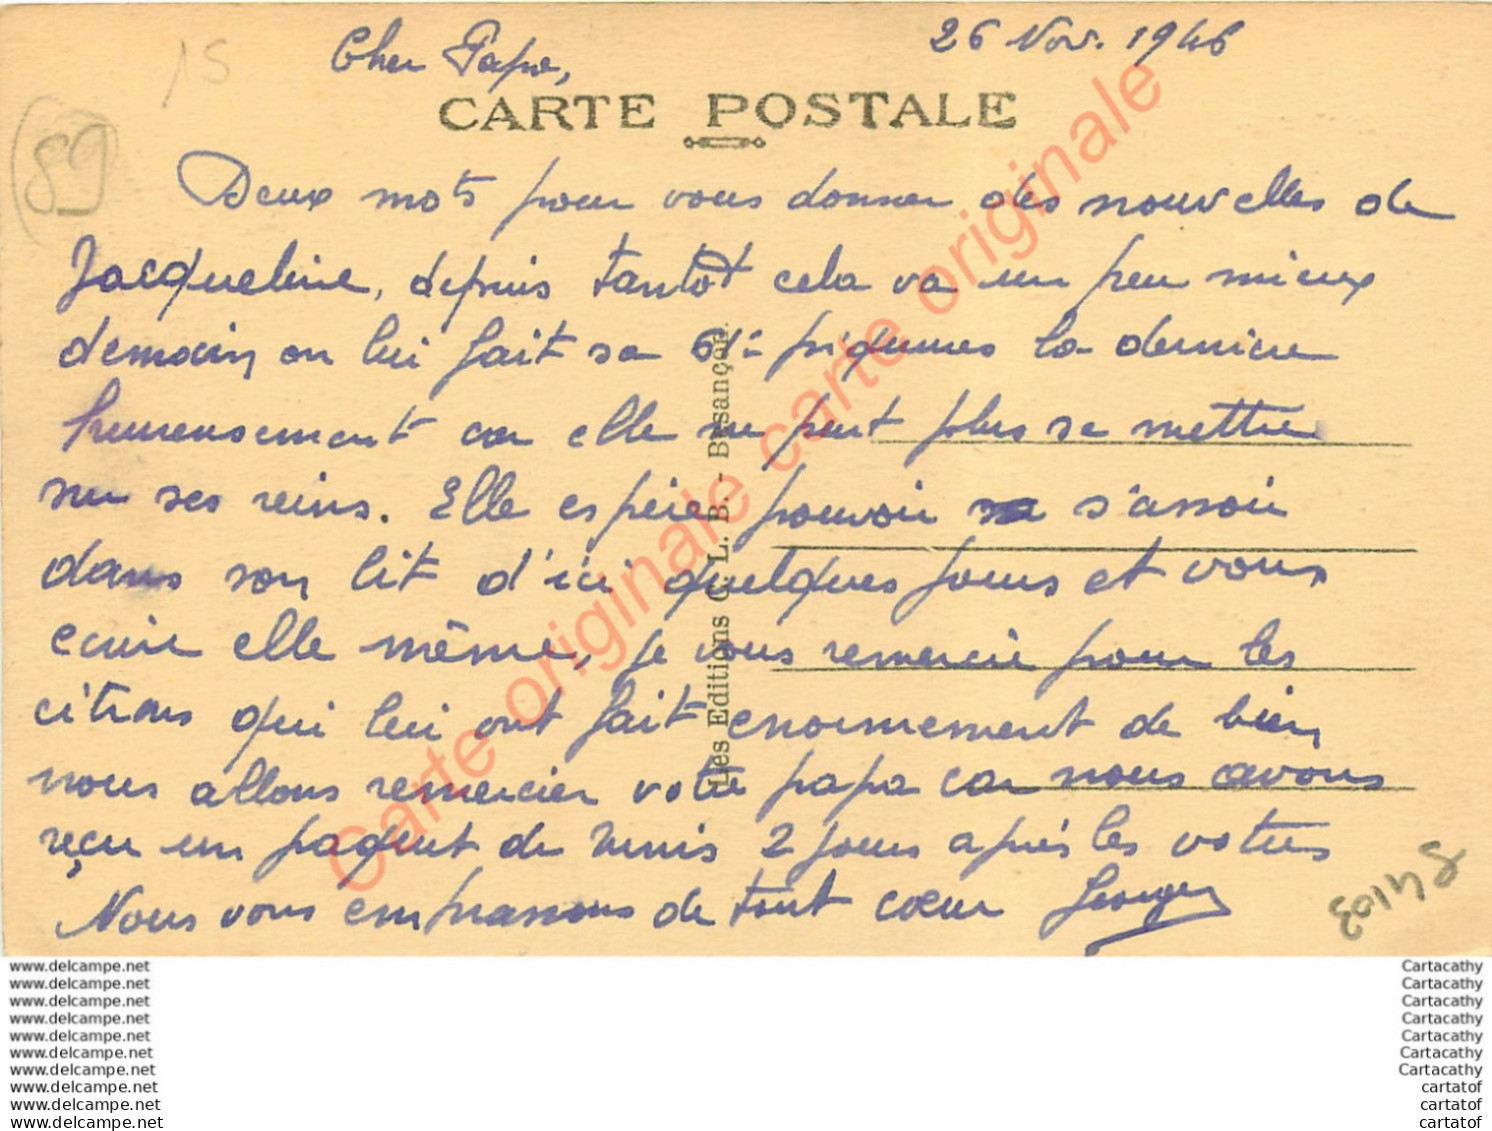 15
Cher Papa,
26 Nov. 1946
CARTE POSTALE
89
Deux mots pour vous donner des nouvelles de
Jacqueline, depuis tantôt cela va un peu mieux
demain on lui fait sa 61è piqures la dernière
heureusement car elle ne peut plus se mettre
sur ses reins. Elle espère pouvoir s'assoir
dans son lit d'ici quelques jours et vous
écrire elle même, je vous remercie pour les
citrons qui lui ont fait enormement de bien
nous allons remercier votre papa car nous avons
reçu un paquet de 2 jours après les votres
Nous vous embrassons de tout cœur Georges
Les Editions C. L. B. - Besançon.
Carte originale carte originale carte originale
www.delcampe.net Cartacathy
www.delcampe.net Cartacathy
www.delcampe.net Cartacathy
www.delcampe.net Cartacathy
www.delcampe.net Cartacathy
www.delcampe.net Cartacathy
www.delcampe.net Cartacathy
www.delcampe.net cartatof
www.delcampe.net cartatof
www.delcampe.net cartatof